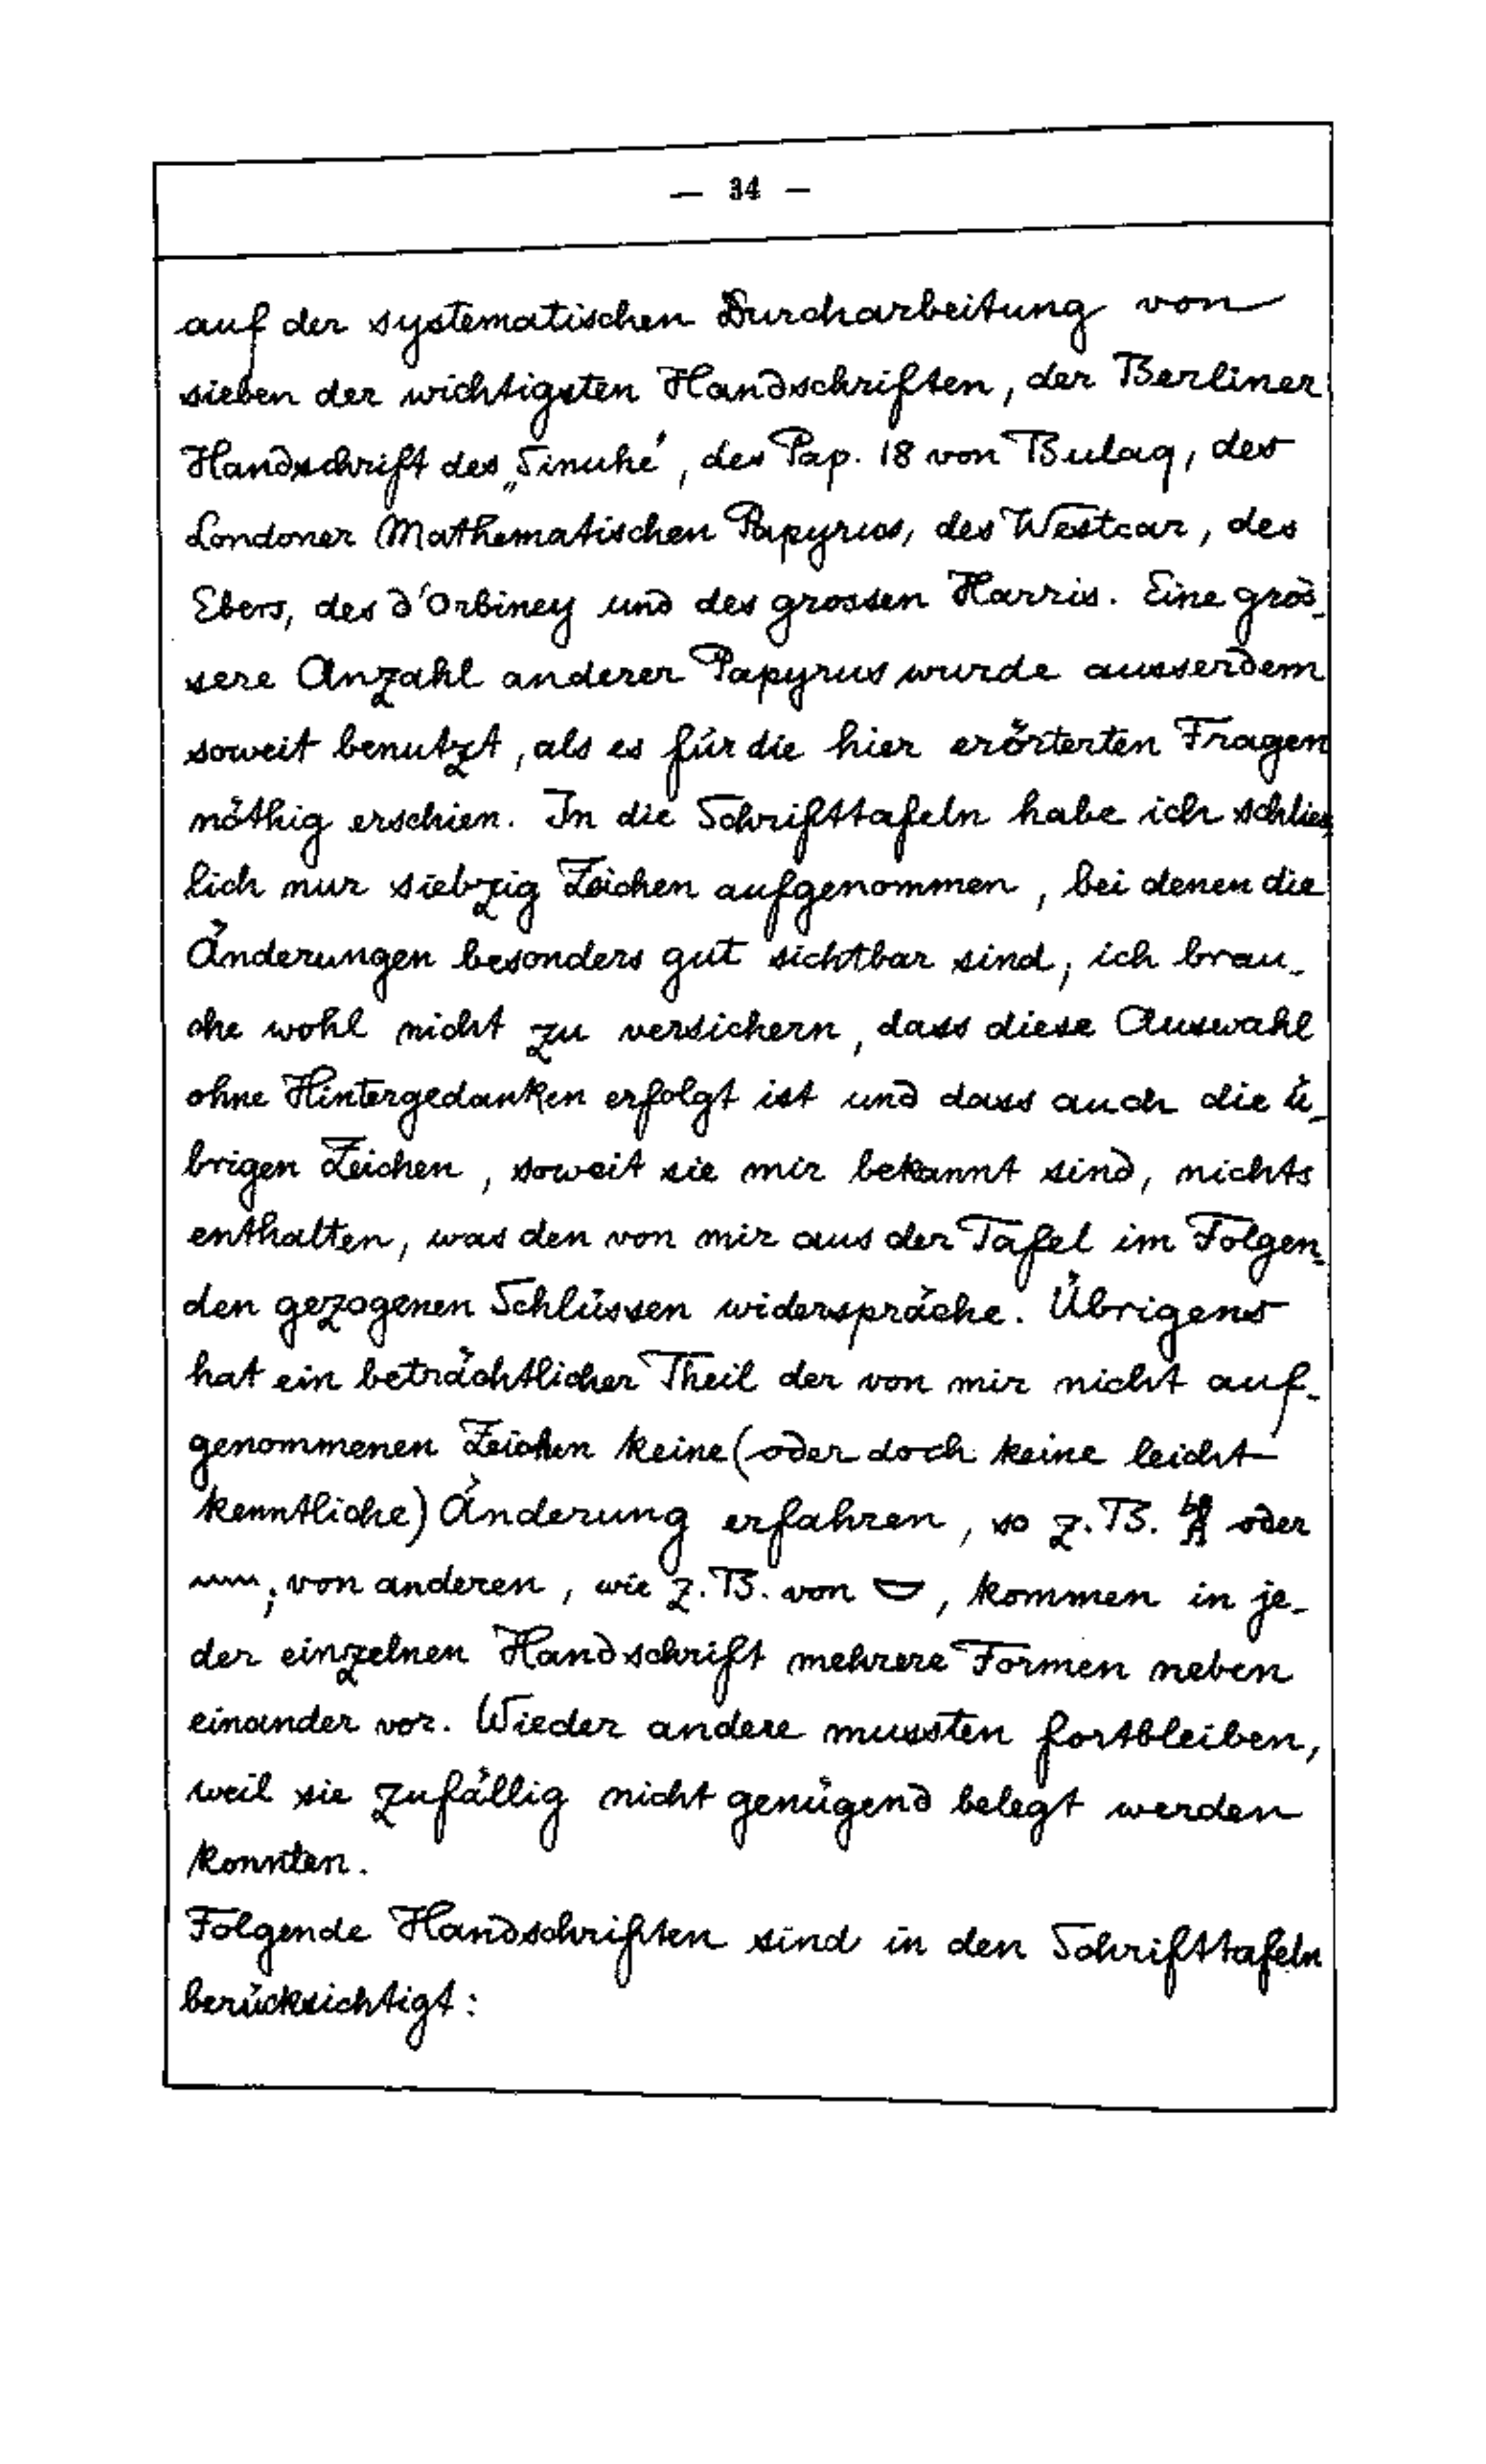 — 34 —
auf der systematischen Durcharbeitung von
sieben der wichtigsten Handschriften, der Berliner
Handschrift des „Sinuhe‘, des Pap. 18 von Bulaq, des
Londoner Mathematischen Papyrus, des Westcar, des
Ebers, des d'Orbiney und des grossen Harris. Eine gros-
sere Anzahl anderer Papyrus wurde ausserdem
soweit benutzt, als es für die hier erörterten Fragen
nöthig erschien. In die Schrifttafeln habe ich schlies
lich nur siebzig Zeichen aufgenommen, bei denen die
Änderungen besonders gut sichtbar sind; ich brau-
che wohl nicht zu versichern, dass diese Auswahl
ohne Hintergedanken erfolgt ist und dass auch die ü-
brigen Zeichen, soweit sie mir bekannt sind, nichts
enthalten, was den von mir aus der Tafel im Folgen-
den gezogenen Schlüssen widerspräche. Übrigens
hat ein beträchtlicher Theil der von mir nicht auf-
genommenen Zeichen keine (oder doch keine leicht
kenntliche) Änderung erfahren, so z. B. oder
𓈖; von anderen, wie z. B. von 𓎟, kommen in je-
der einzelnen Handschrift mehrere Formen neben
einander vor. Wieder andere mussten fortbleiben,
weil sie zufällig nicht genügend belegt werden
konnten.
Folgende Handschriften sind in den Schrifttafeln
berücksichtigt: